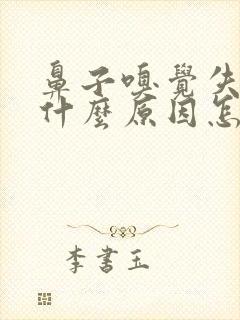 鼻子嗅覺失
什麼原因怎
李書玉